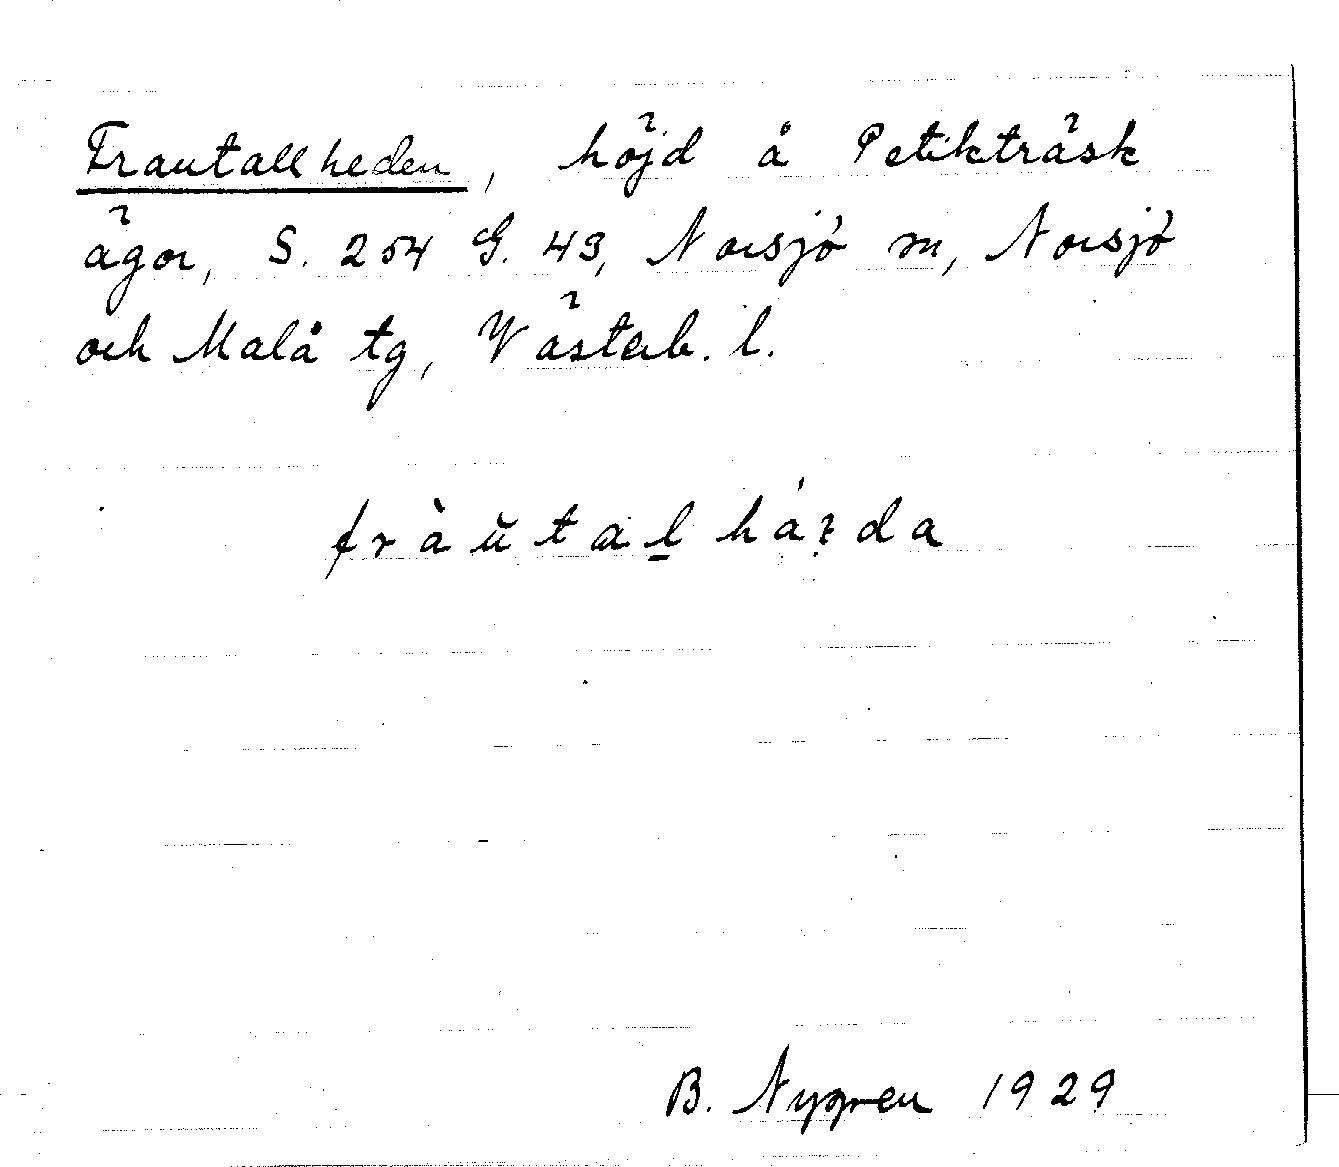 Frautallheden, höjd å Petikträsk
ägor, S. 254 G. 43, Norsjö m, Norsjö
och Malå tg, Västerb. l.
fràŭtal̲ há꞉da
B. Nygren 1929